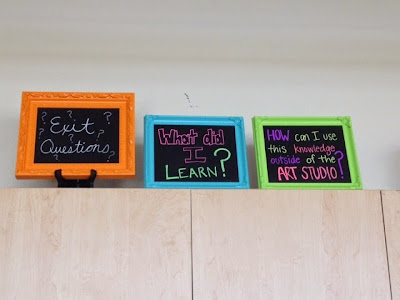 ? ? ?
? Exit ?
? Questions ?
What did
I
LEARN?
HOW can I use
this knowledge
outside of the
ART STUDIO?